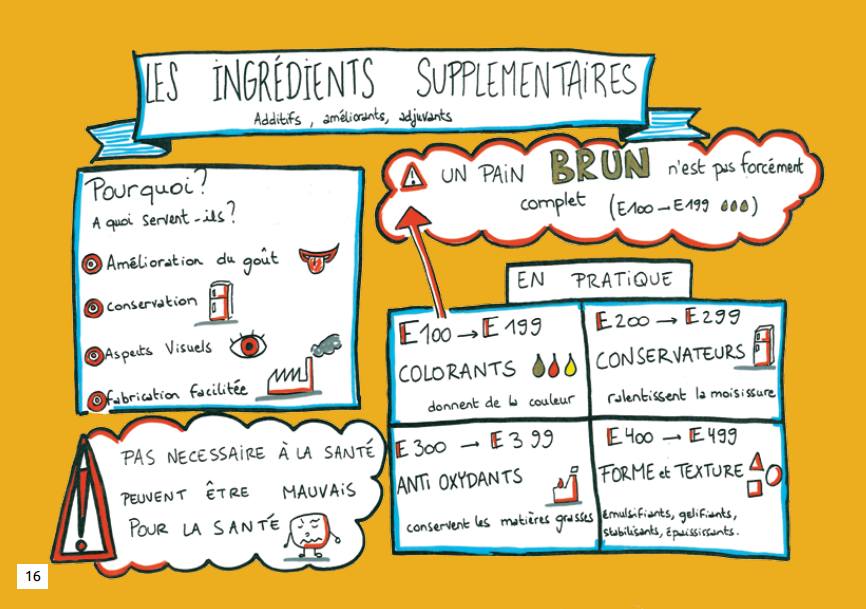 LES INGRÉDIENTS SUPPLEMENTAIRES
Additifs, améliorants, adjuvants
Pourquoi?
A quoi servent-ils?
Amélioration du goût
Conservation
Aspects Visuels
Fabrication facilitée
UN PAIN BRUN n'est pas forcément
complet (E100→E199)
EN PRATIQUE
E100 → E199
COLORANTS
donnent de la couleur
E200 → E299
CONSERVATEURS
ralentissent la moisissure
E300 → E399
ANTI OXYDANTS
conservent les matières grasses
E400 → E499
FORME et TEXTURE
émulsifiants, gelifiants,
stabilisants, épaississants.
PAS NECESSAIRE À LA SANTÉ
PEUVENT ÊTRE MAUVAIS
POUR LA SANTÉ
16